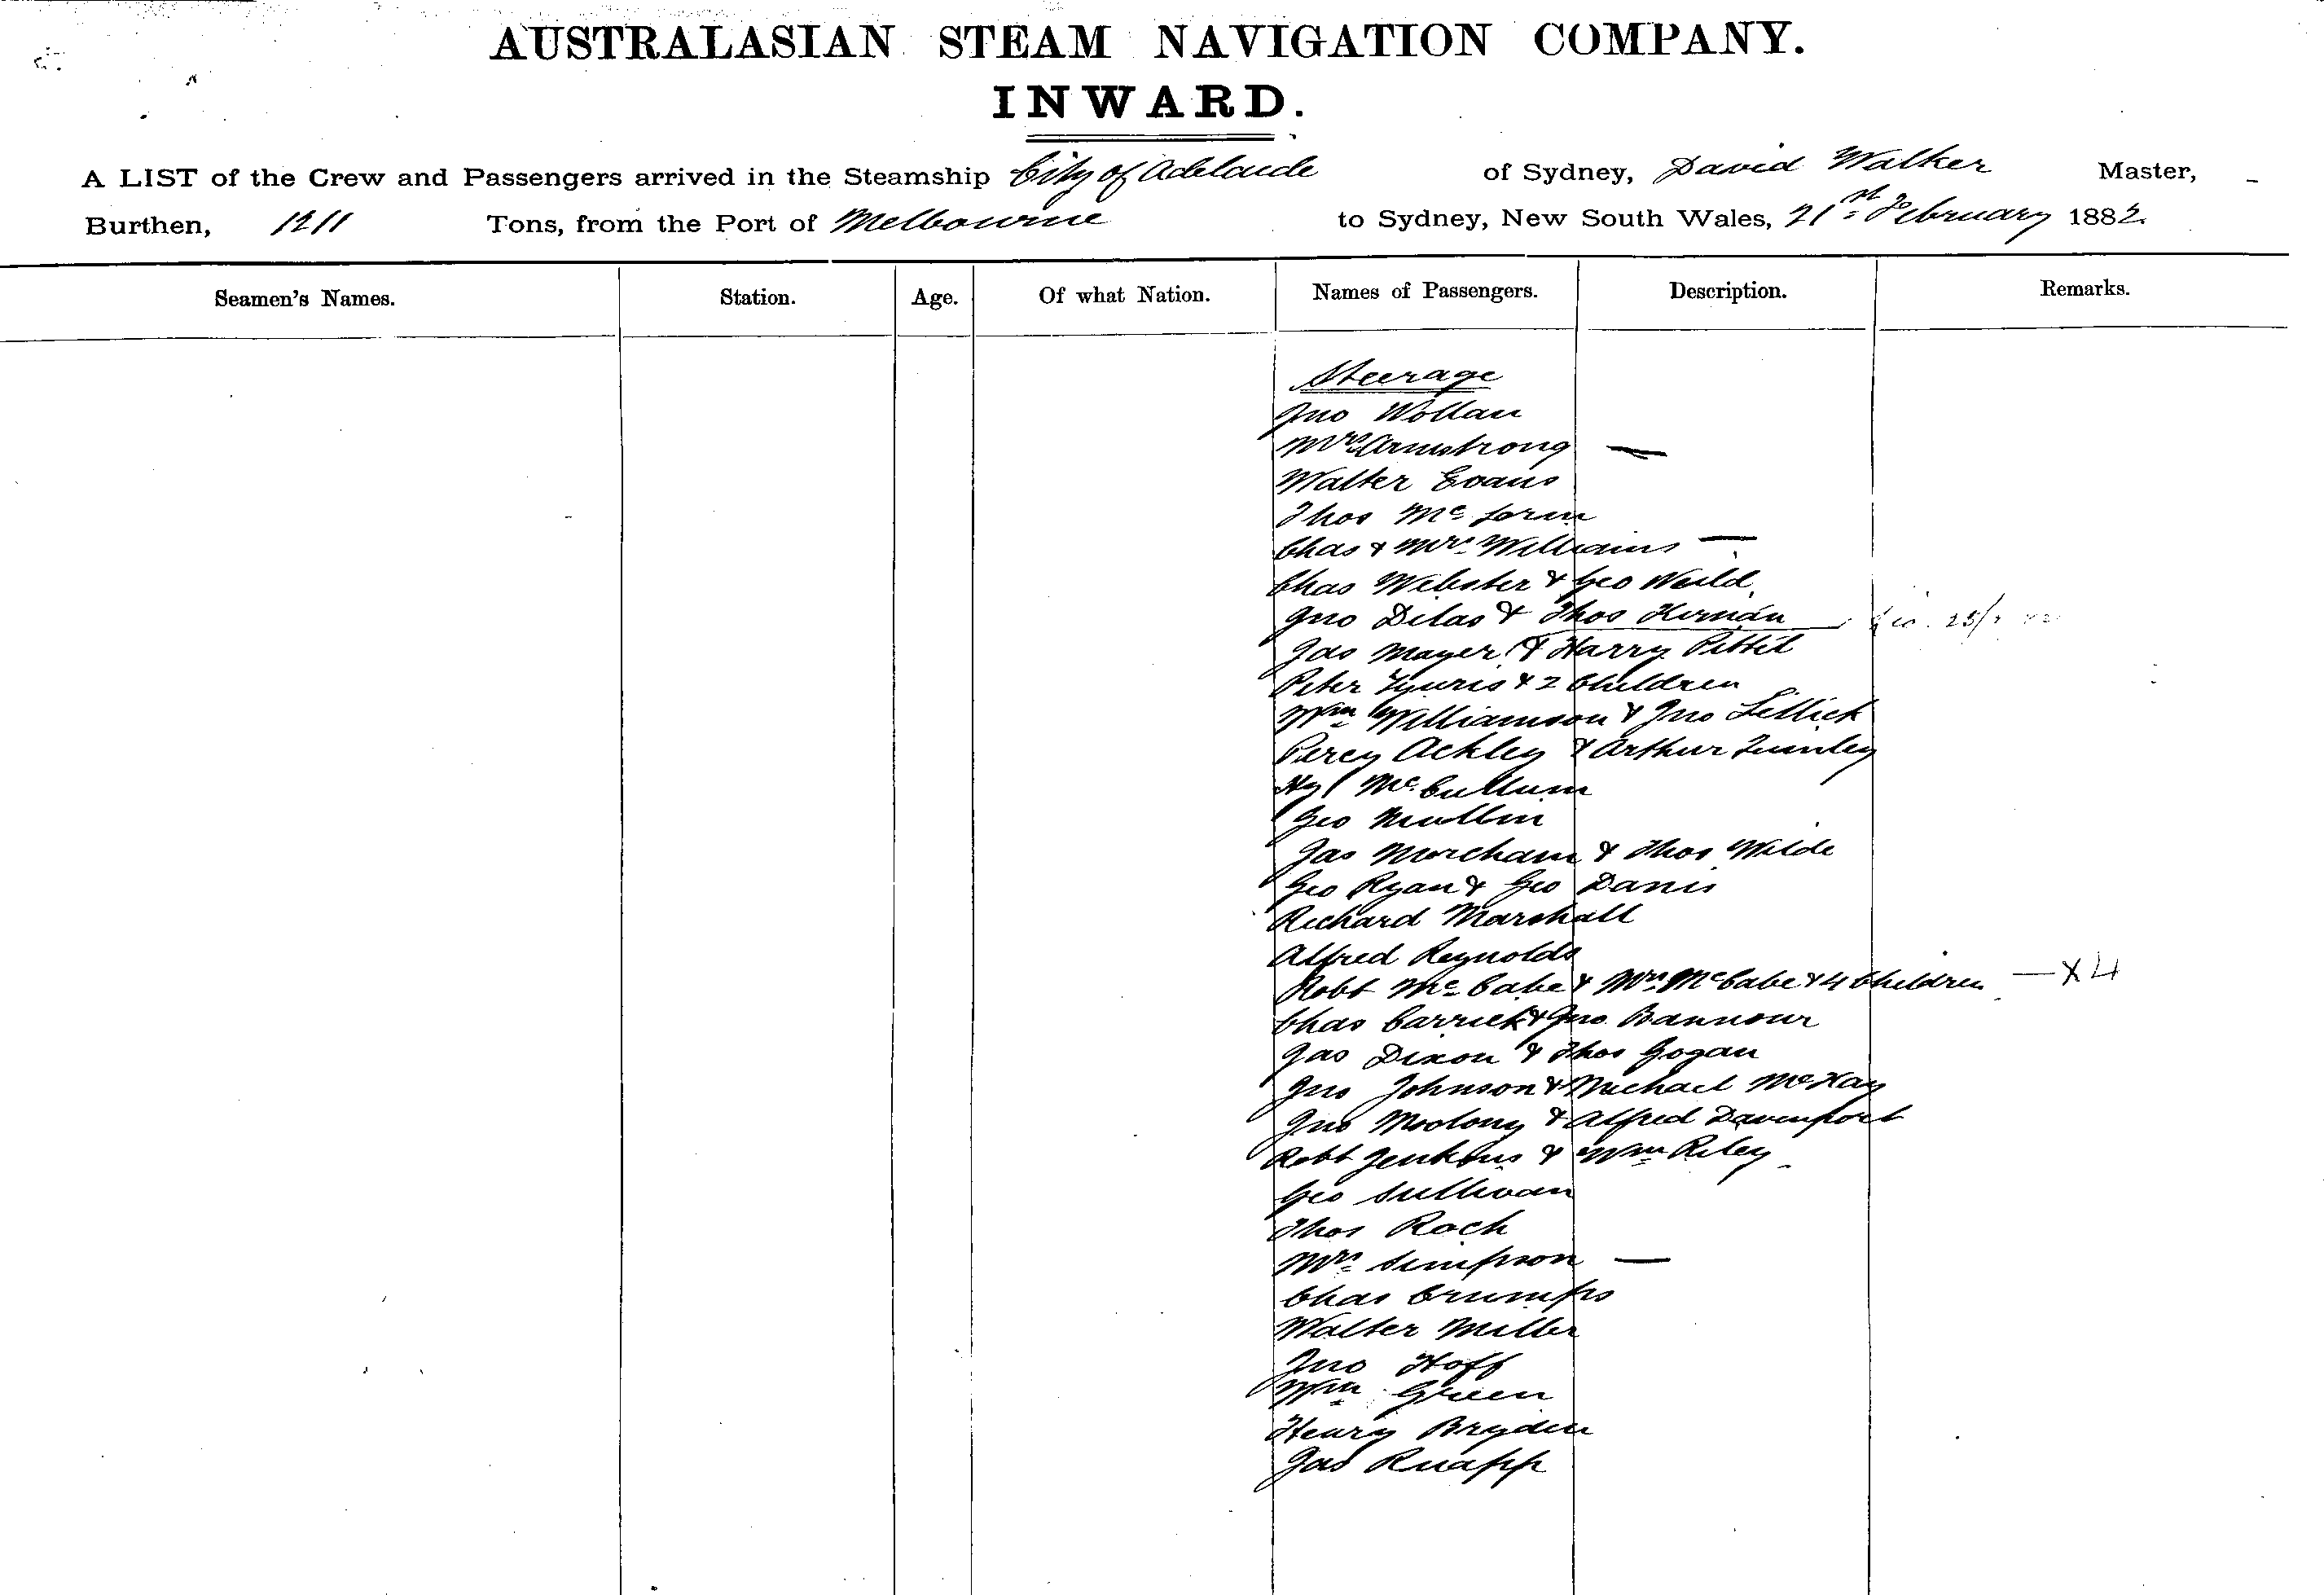 AUSTRALASIAN STEAM NAVIGATION COMPANY.
INWARD.
A LIST of the Crew and Passengers arrived in the Steamship City of Adelaide of Sydney, David Walker Master,
Burthen, 1211 Tons, from the Port of Melbourne to Sydney, New South Wales, 21st February 1882.
Seamen's Names. Station. Age. Of what Nation. Names of Passengers. Description. Remarks.
Steerage
Jno Wollan
Mrs Armstrong —
Walter Evans
Thos Mc
Chas & Mrs Williams —
Chas Webster & Geo Weild
Jno Dilas & Thos Hernan
Jas Mayer & Harry Pettit
Peter & 2 Children
Wm Williamson & Jno Lellick
Percy Ackley & Arthur
Hy McCullum
Geo Mullin
Jas Morcham & Thos Wilde
Geo Ryan & Geo Danis
Richard Marshall
Alfred Reynolds
Robt McCabe & Mrs McCabe & 4 Children — X 4
Chas Carrick & Jno Bannour
Jas Dixon & Thos Gogan
Jno Johnson & Michael McKay
Jno Moolony & Alfred Davenport
Robt Jenkins & Wm Riley
Geo Sullivan
Thos Roch
Mrs Simpson —
Chas Crumps
Walter Miller
Jno Hoff
Wm Green
Henry Bryden
Jas Knapp